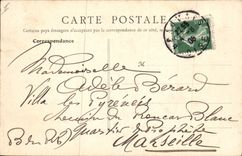 CARTE POSTALE
Certains pays étrangers n'acceptent pas la correspondance de ce côté,
Correspondance
Mademoiselle
Adèle Bérard
Villa les Pyrénées
chemin du Roucas Blanc
quartier du prophète
B. du R.
Marseille